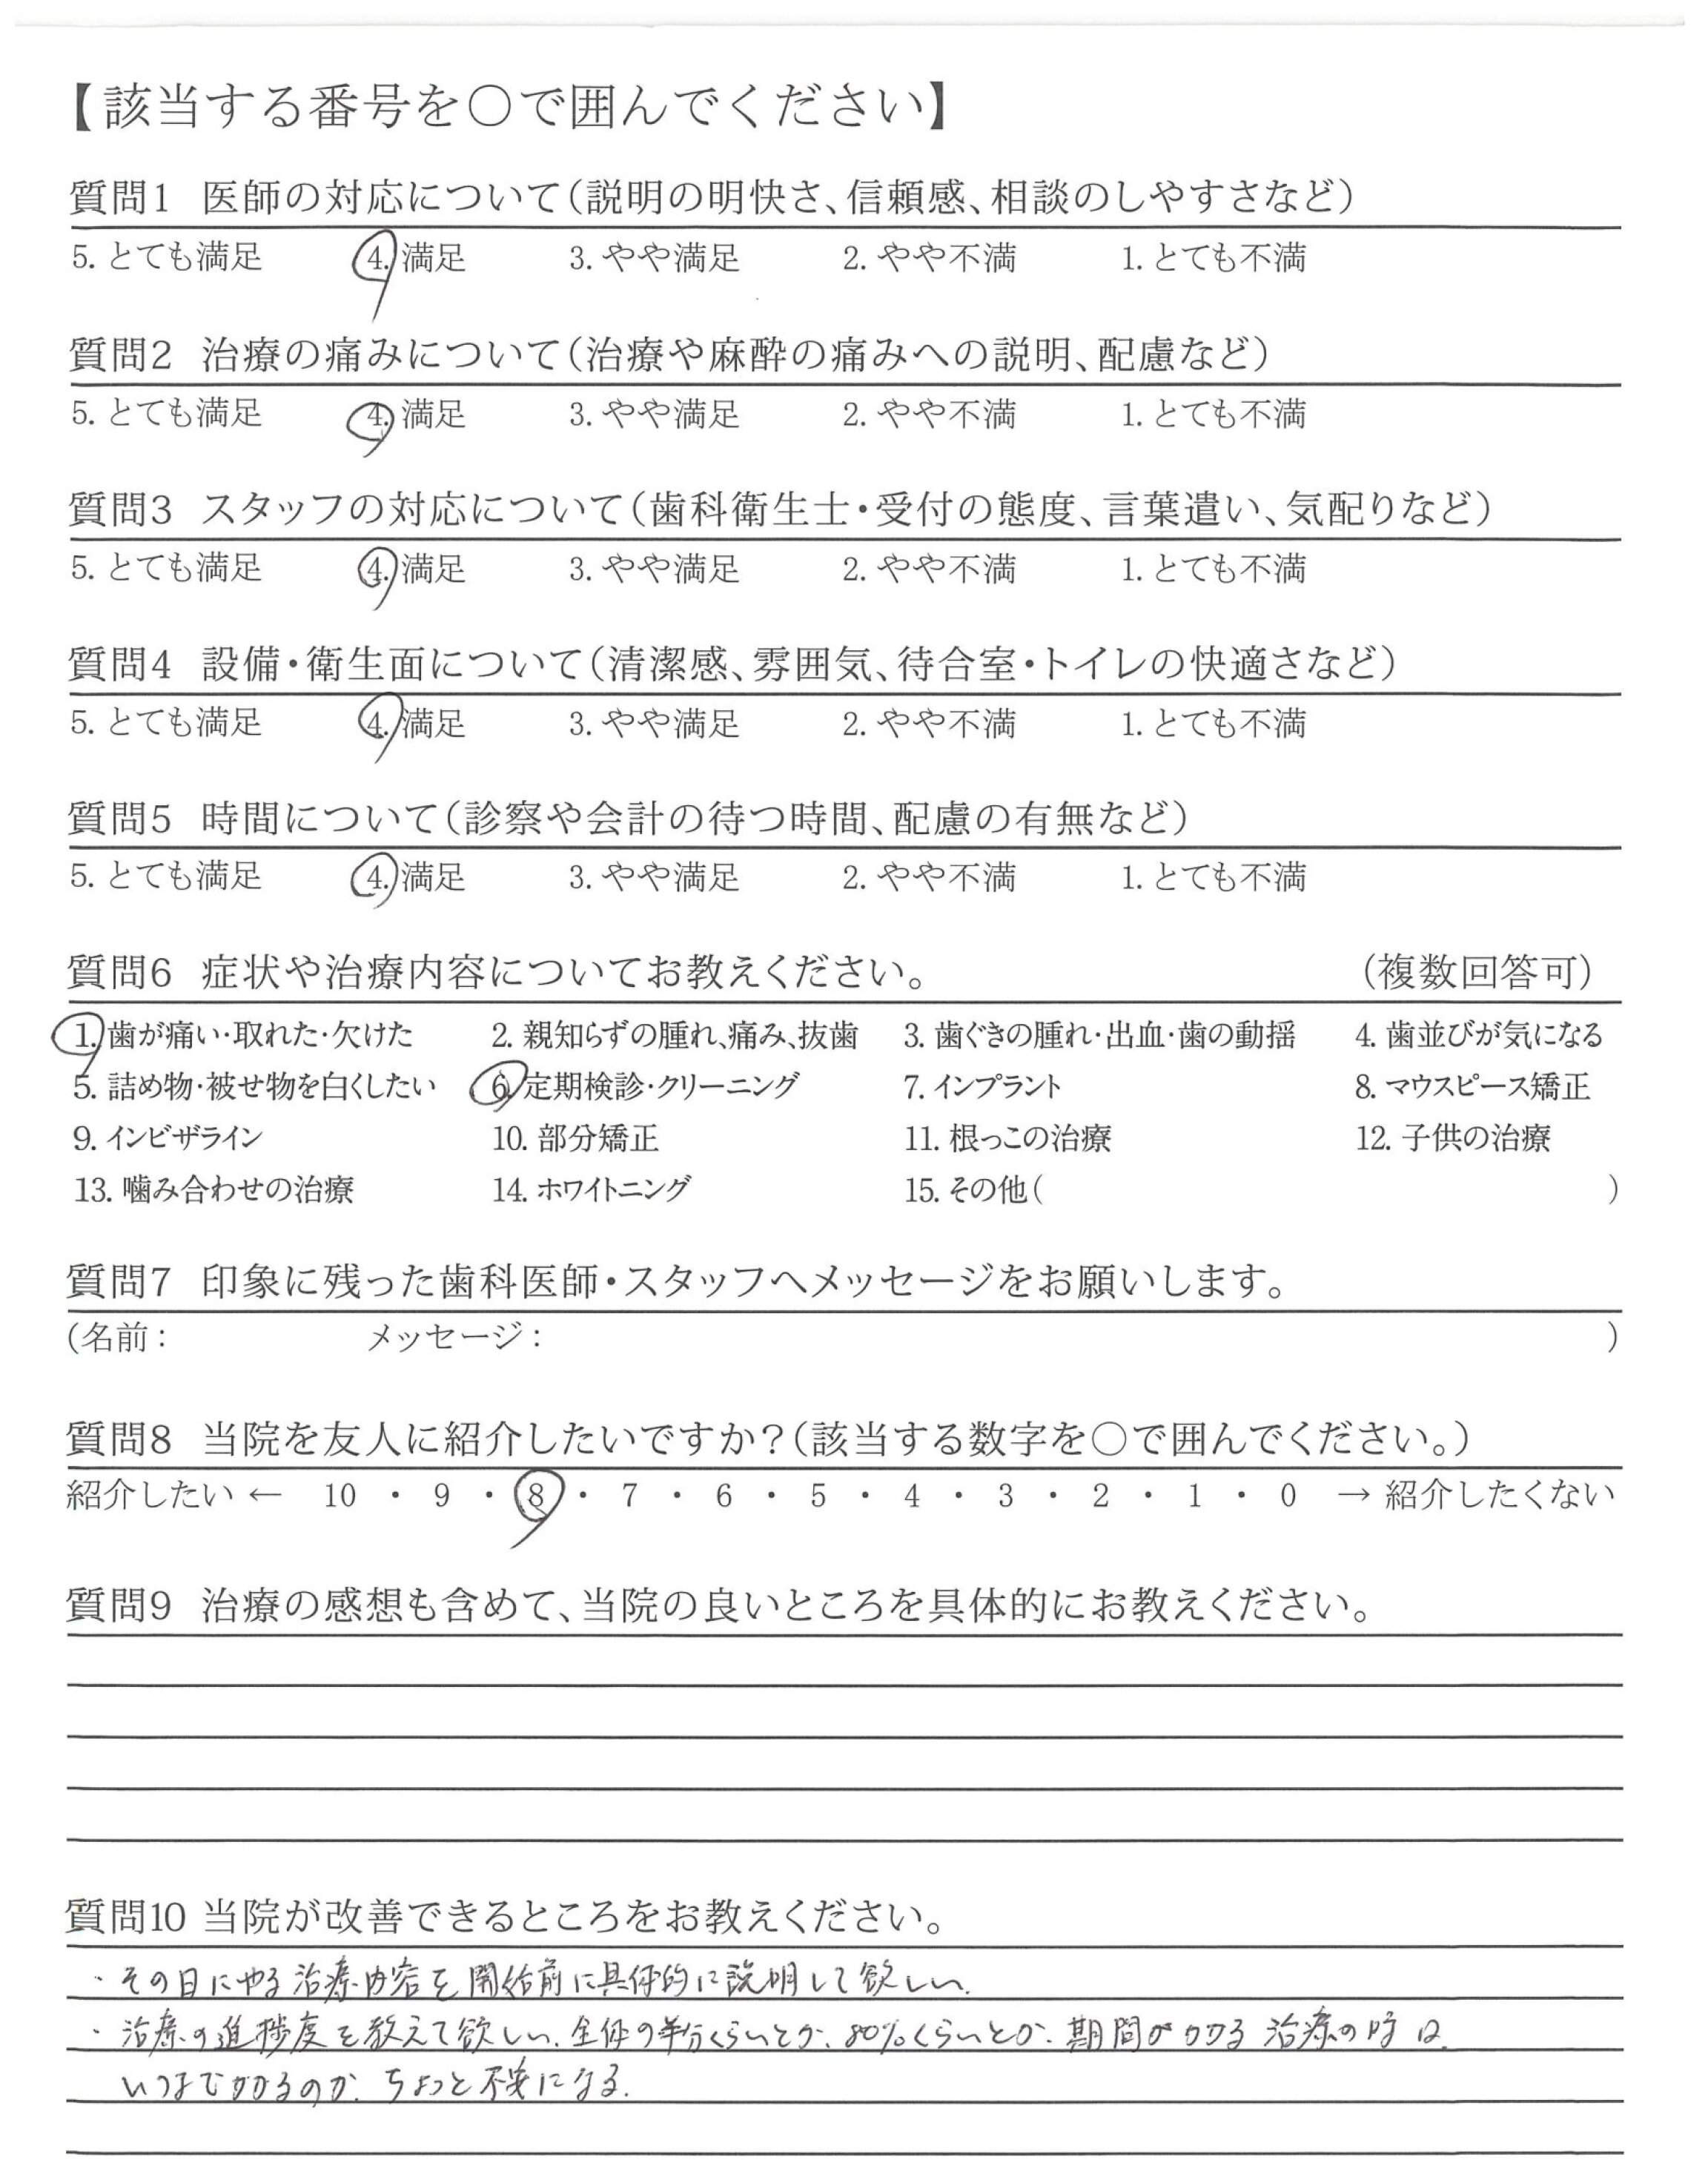 【該当する番号を○で囲んでください】
質問1 医師の対応について(説明の明快さ、信頼感、相談のしやすさなど)
5. とても満足 4. 満足 3. やや満足 2. やや不満 1. とても不満
質問2 治療の痛みについて(治療や麻酔の痛みへの説明、配慮など)
5. とても満足 4. 満足 3. やや満足 2. やや不満 1. とても不満
質問3 スタッフの対応について(歯科衛生士・受付の態度、言葉遣い、気配りなど)
5. とても満足 4. 満足 3. やや満足 2. やや不満 1. とても不満
質問4 設備・衛生面について(清潔感、雰囲気、待合室・トイレの快適さなど)
5. とても満足 4. 満足 3. やや満足 2. やや不満 1. とても不満
質問5 時間について(診察や会計の待つ時間、配慮の有無など)
5. とても満足 4. 満足 3. やや満足 2. やや不満 1. とても不満
質問6 症状や治療内容についてお教えください。 (複数回答可)
1. 歯が痛い・取れた・欠けた 2. 親知らずの腫れ、痛み、抜歯 3. 歯ぐきの腫れ・出血・歯の動揺 4. 歯並びが気になる
5. 詰め物・被せ物を白くしたい 6. 定期検診・クリーニング 7. インプラント 8. マウスピース矯正
9. インビザライン 10. 部分矯正 11. 根っこの治療 12. 子供の治療
13. 噛み合わせの治療 14. ホワイトニング 15. その他( )
質問7 印象に残った歯科医師・スタッフへメッセージをお願いします。
(名前: メッセージ: )
質問8 当院を友人に紹介したいですか?(該当する数字を○で囲んでください。)
紹介したい ← 10 ・ 9 ・ 8 ・ 7 ・ 6 ・ 5 ・ 4 ・ 3 ・ 2 ・ 1 ・ 0 → 紹介したくない
質問9 治療の感想も含めて、当院の良いところを具体的にお教えください。
質問10 当院が改善できるところをお教えください。
・その日にやる治療内容を開始前に具体的に説明して欲しい.
・治療の進捗度を教えて欲しい. 全体の半分くらいとか、80%くらいとか. 期間がかかる治療の時は、
いつまでかかるのか、ちょっと不安になる.